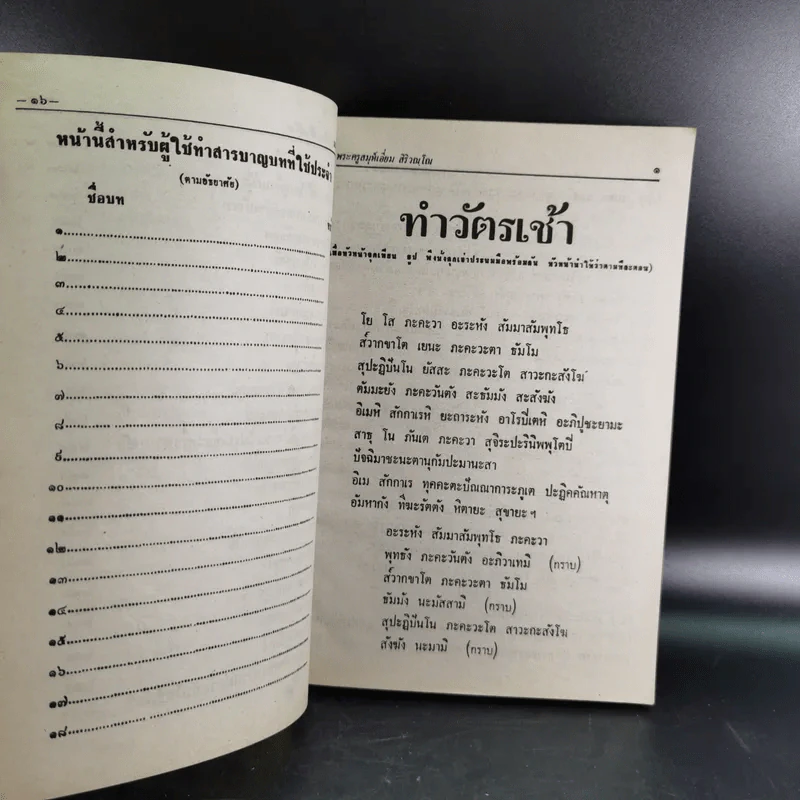 — ๑๖ —
หน้านี้สำหรับผู้ใช้ทำสารบาญบทที่ใช้ประจำ
(ตามอัธยาศัย)
ชื่อบท
๑
๒
๓
๔
๕
๖
๗
๘
๙
๑๐
๑๑
๑๒
๑๓
๑๔
๑๕
๑๖
๑๗
๑๘
พระครูสมุห์เอี่ยม สิริวณฺโณ ๑
ทำวัตรเช้า
(เมื่อหัวหน้าจุดเทียน ธูป พึงนั่งคุกเข่าประนมมือพร้อมกัน หัวหน้านำให้ว่าตามทีละตอน)
โย โส ภะคะวา อะระหัง สัมมาสัมพุทโธ
ส๎วากขาโต เยนะ ภะคะวะตา ธัมโม
สุปะฏิปันโน ยัสสะ ภะคะวะโต สาวะกะสังโฆ
ตัมมะยัง ภะคะวันตัง สะธัมมัง สะสังฆัง
อิเมหิ สักกาเรหิ ยะถาระหัง อาโรปิเตหิ อะภิปูชะยามะ
สาธุ โน ภันเต ภะคะวา สุจิระปะรินิพพุโตปิ
ปัจฉิมาชะนะตานุกัมปะมานะสา
อิเม สักกาเร ทุคคะตะปัณณาการะภูเต ปะฏิคคัณหาตุ
อัมหากัง ทีฆะรัตตัง หิตายะ สุขายะ ฯ
อะระหัง สัมมาสัมพุทโธ ภะคะวา
พุทธัง ภะคะวันตัง อะภิวาเทมิ (กราบ)
ส๎วากขาโต ภะคะวะตา ธัมโม
ธัมมัง นะมัสสามิ (กราบ)
สุปะฏิปันโน ภะคะวะโต สาวะกะสังโฆ
สังฆัง นะมามิ (กราบ)